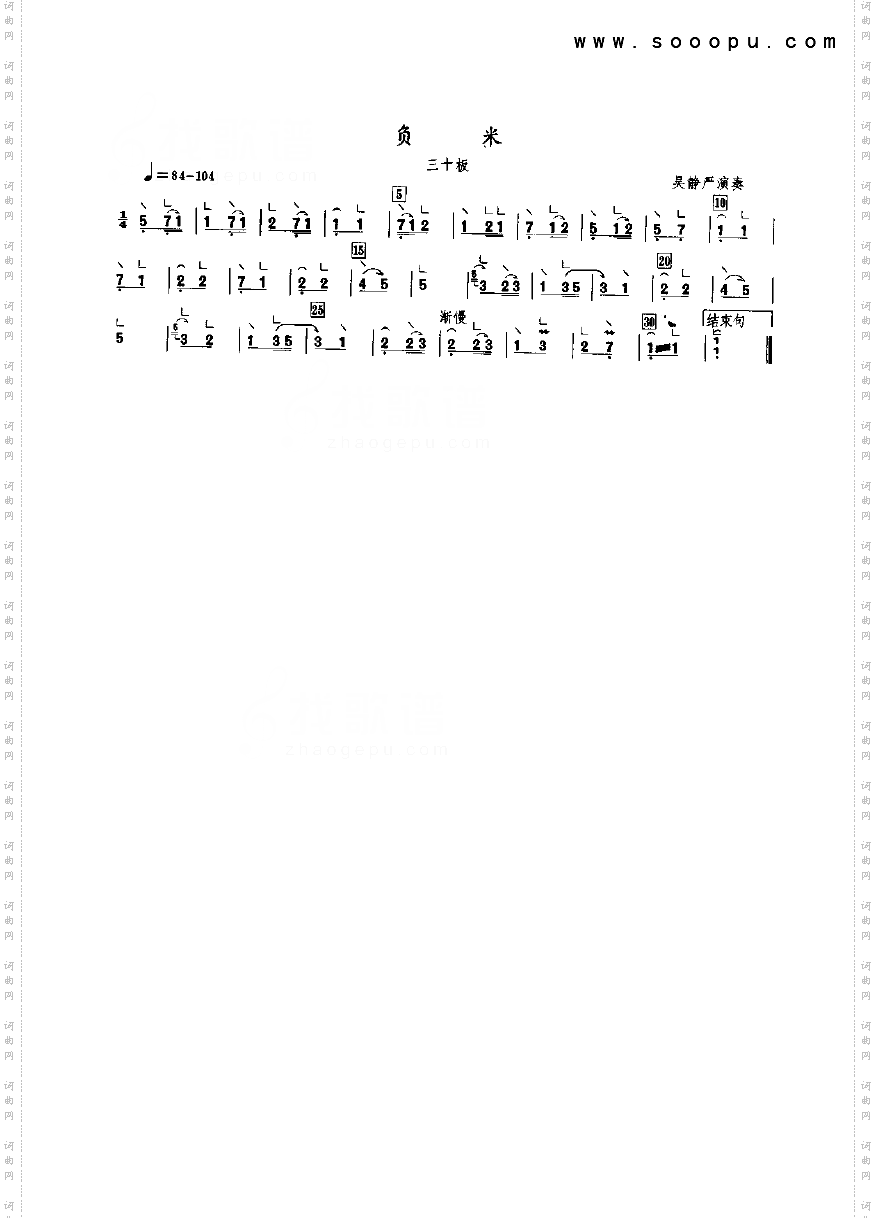 www.sooopu.com
负 米
三十板
♩=84-104
吴静严演奏
5
10
1/4 5 71 | 1 71 | 2 71 | 1 1 | 712 | 1 21 | 7 12 | 5 12 | 5 7 | 1 1 |
15
20
7 1 | 2 2 | 7 1 | 2 2 | 4 5 | 5 | 5 3 23 | 1 35 | 3 1 | 2 2 | 4 5 |
25
渐慢
30
结束句
5 | 5 3 2 | 1 35 | 3 1 | 2 23 | 2 23 | 1 3 | 2 7 | 1 1 | 1 1
zhaogepu.com
zhaogepu.com